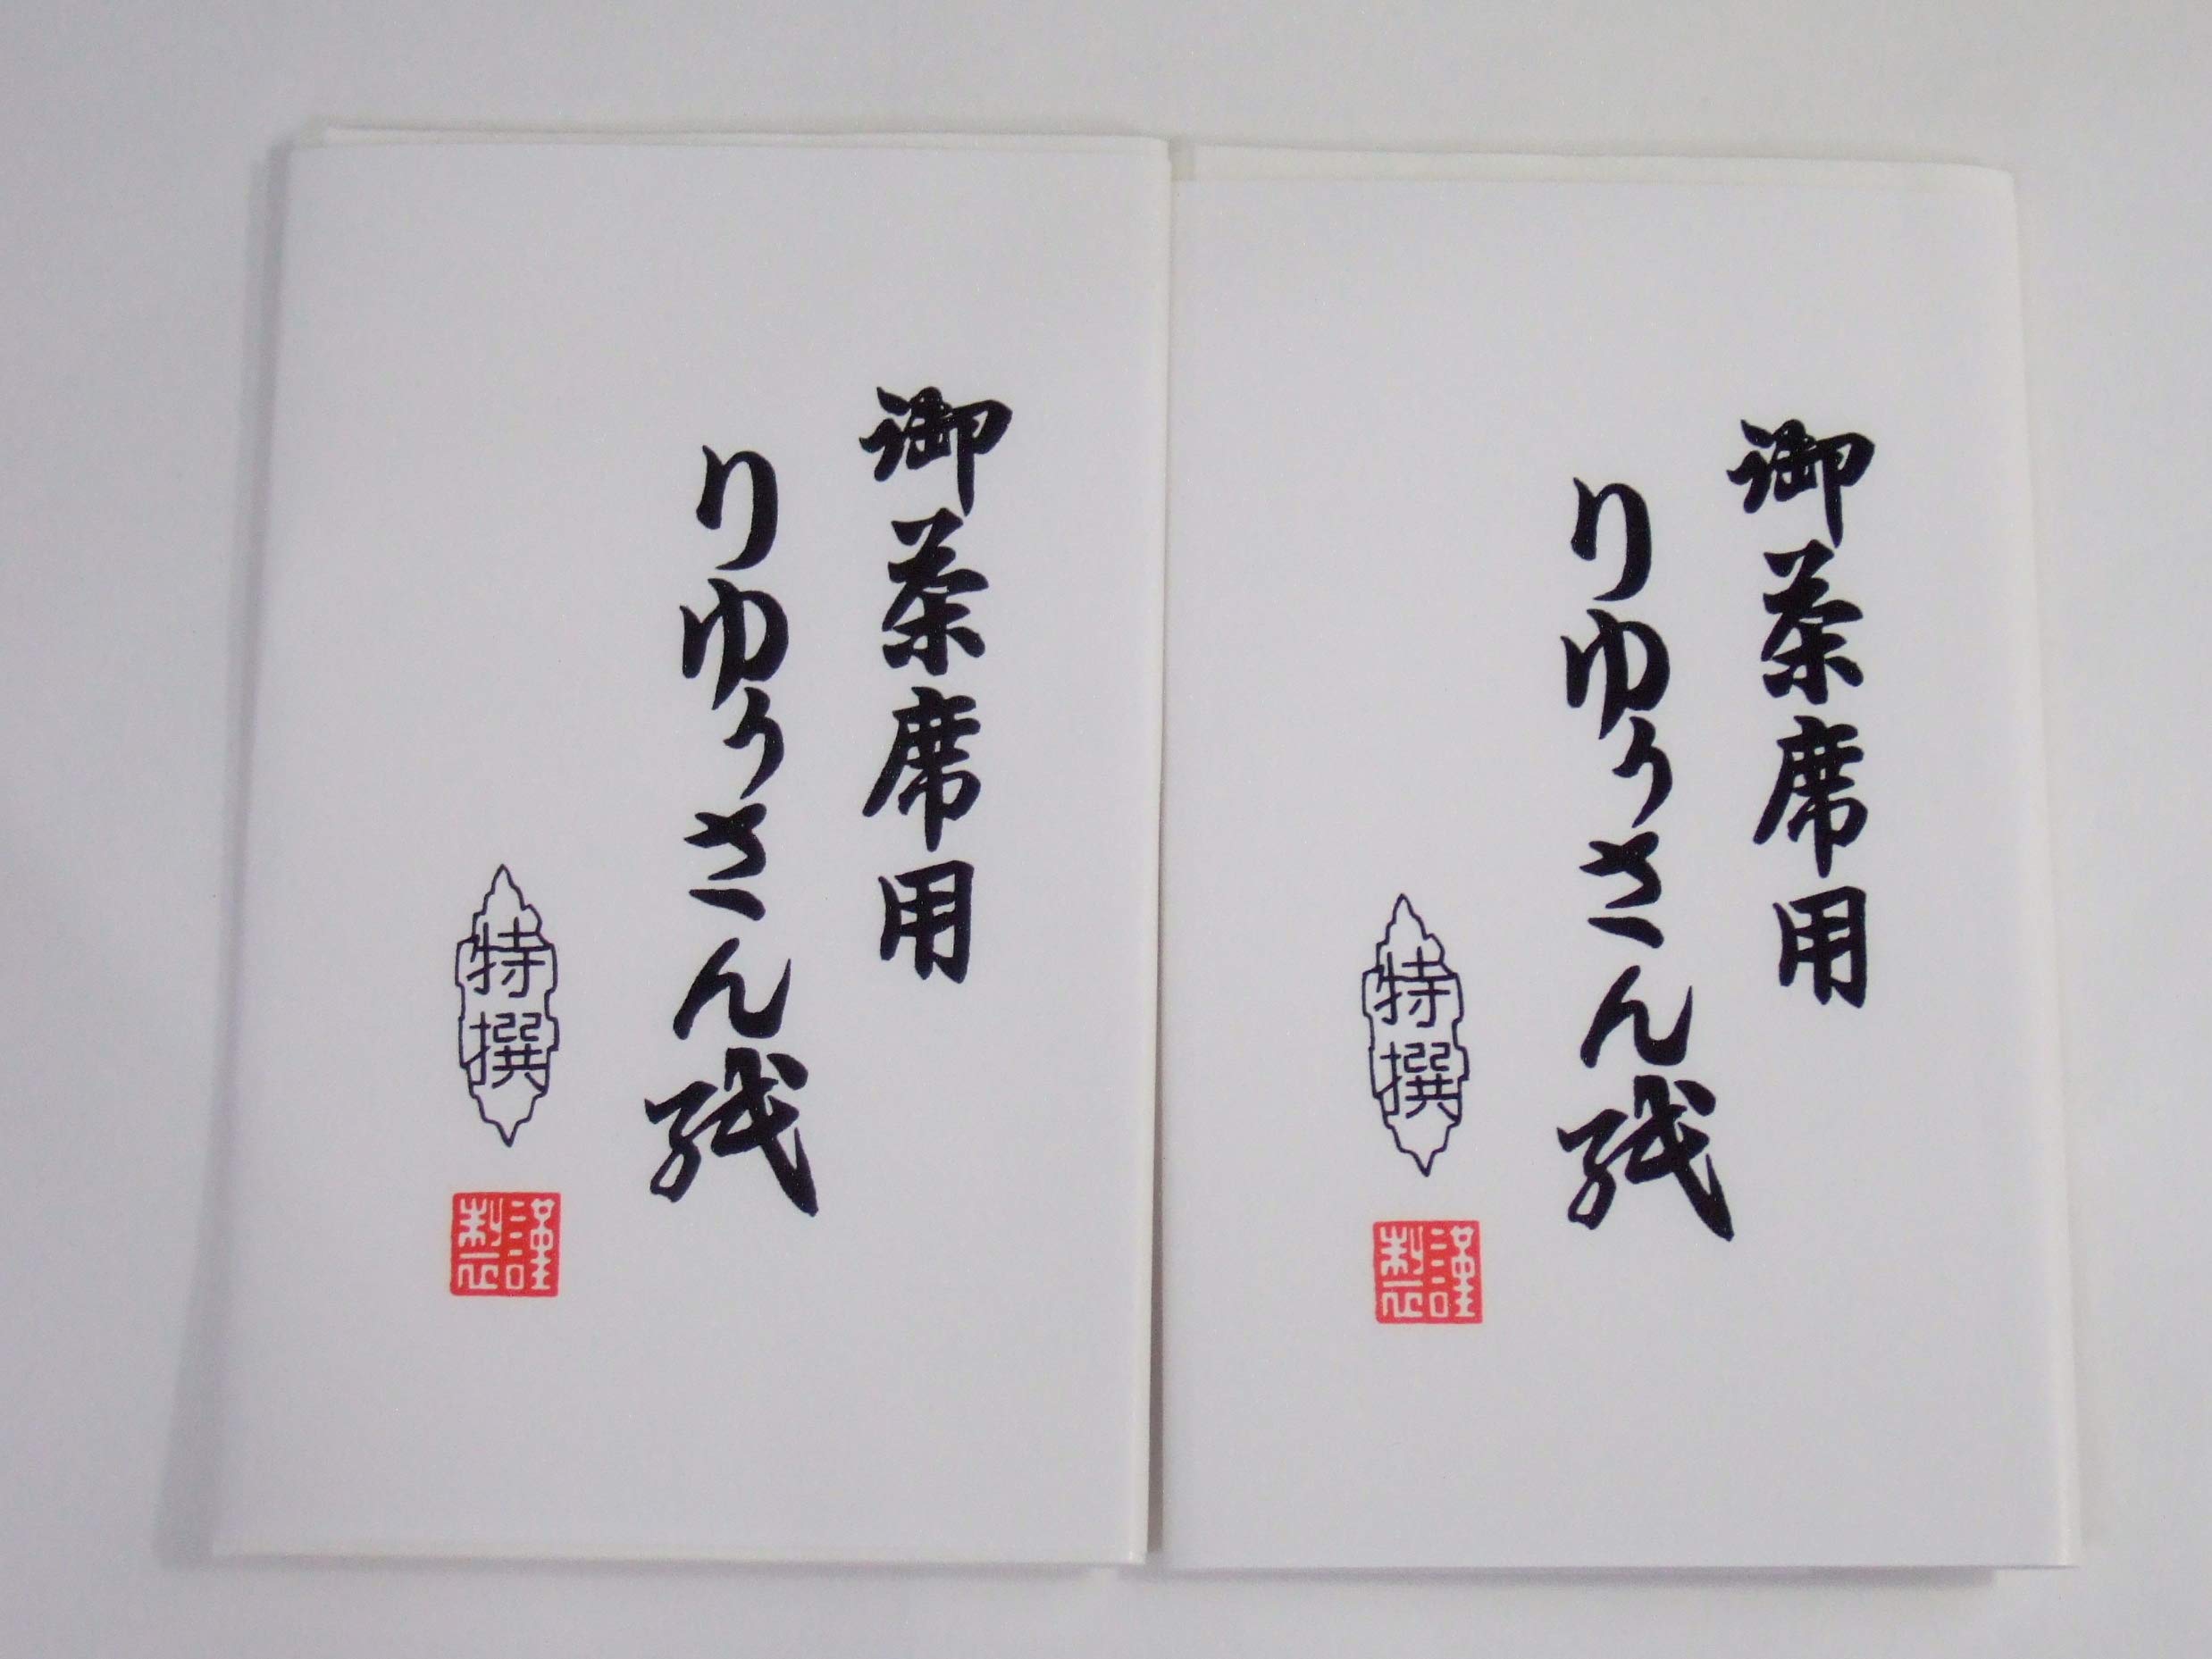 御茶席用
りゆうさん紙
特撰
謹製
御茶席用
りゆうさん紙
特撰
謹製